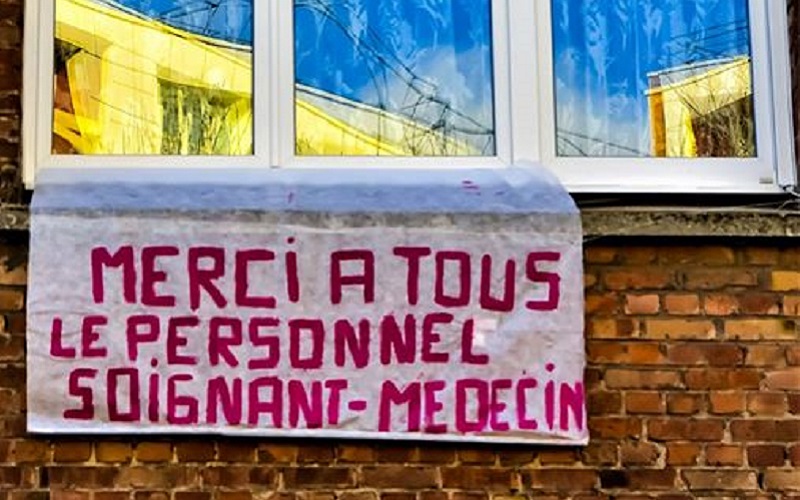 MERCi A TOUS
LE PERSONNEL
SOiGNANT-MEDECiN